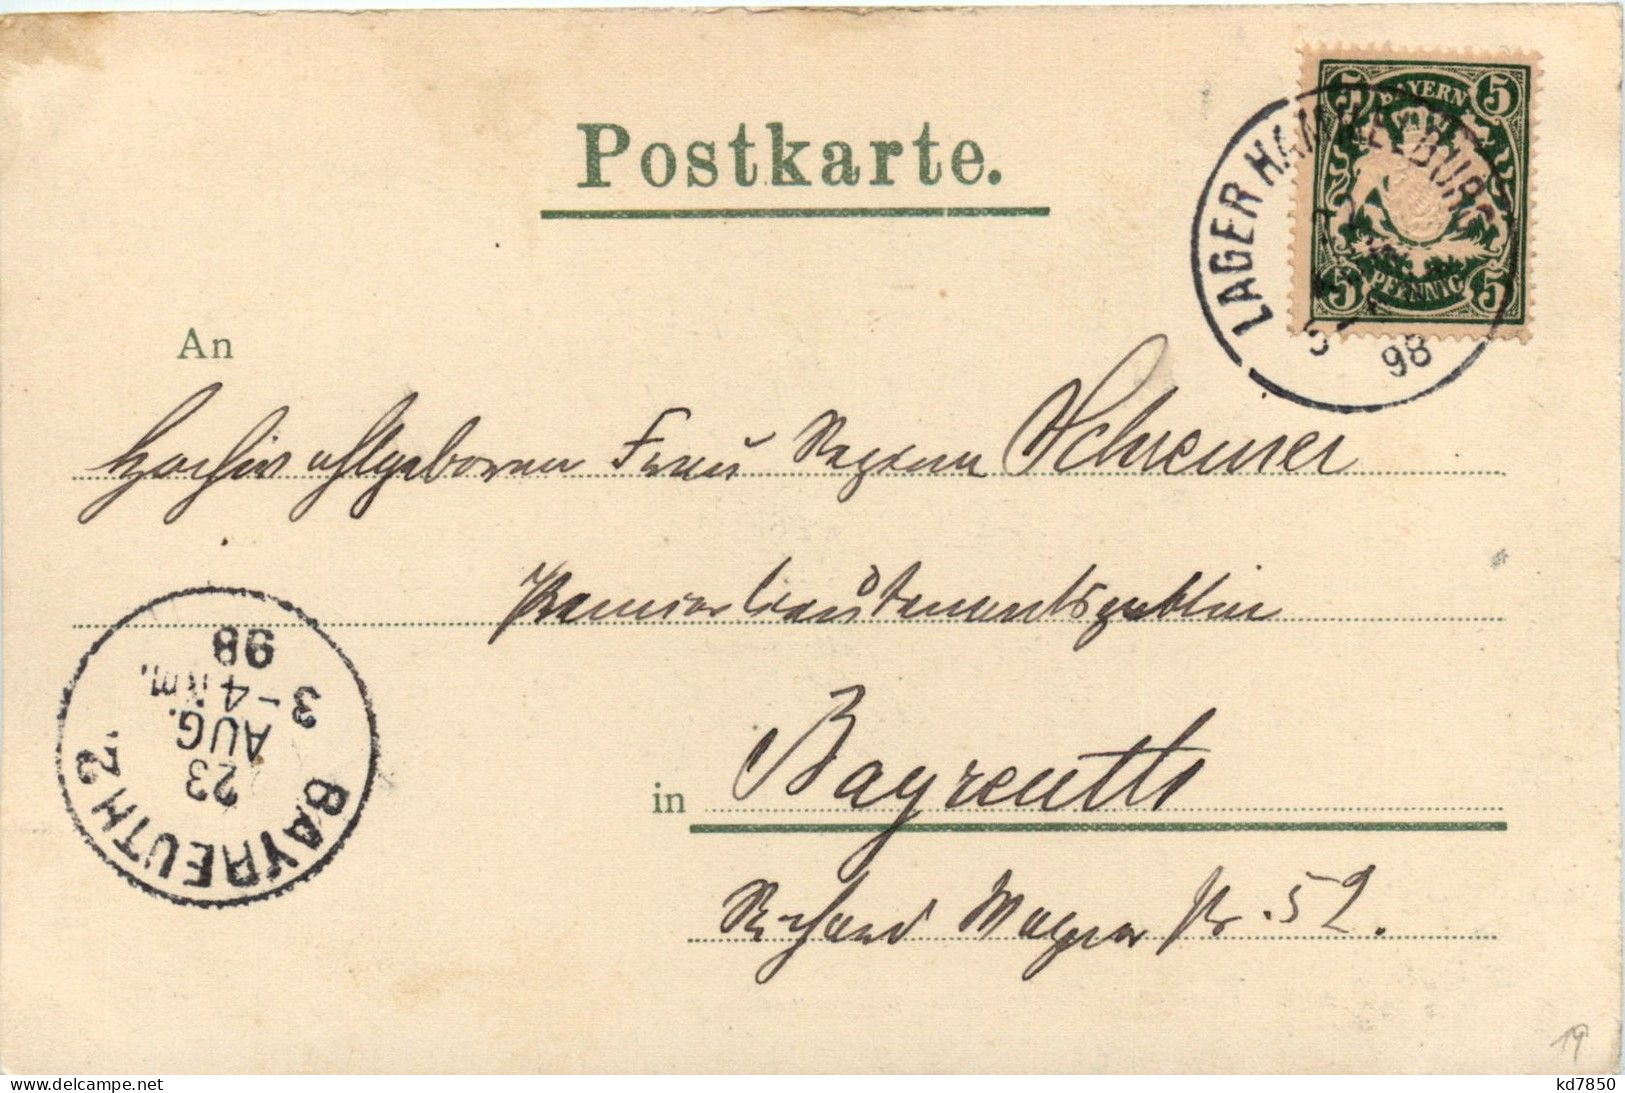 Postkarte.
BAYERN
5 5
PFENNIG
5 5
LAGER HAMMELBURG
98
An
Hochwohlgeboren Frau
Premierlieutenantsgattin
in Bayreuth
Richard Wagner Str. 52.
BAYREUTH 2.
23
AUG.
3-4 Nm.
98
19
www.delcampe.net
kd7850